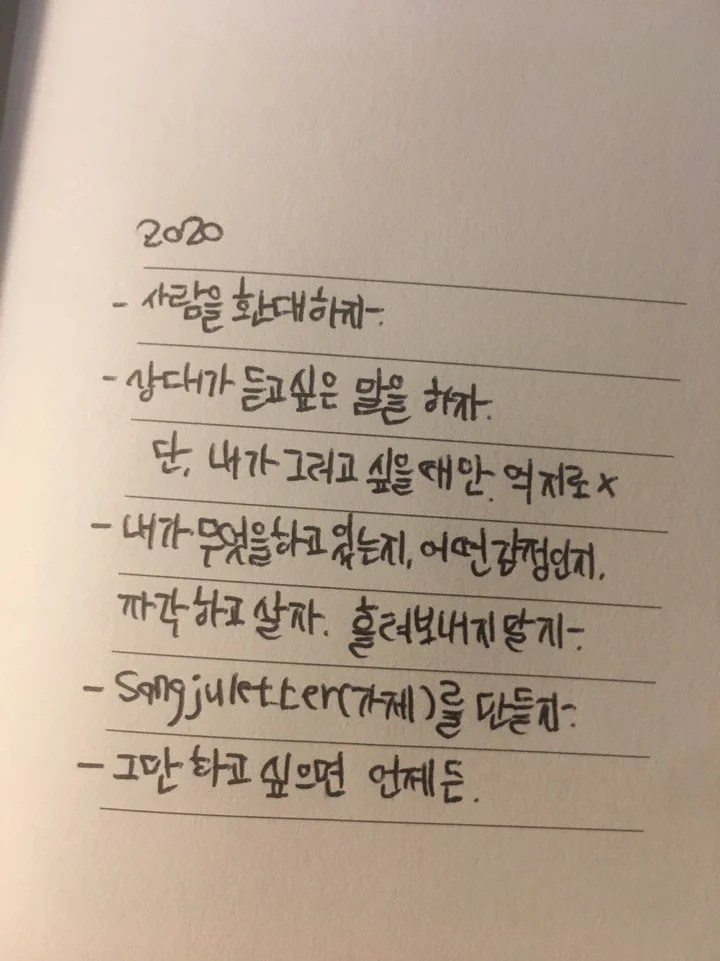 2020
- 사람을 환대하자.
- 상대가 듣고싶은 말을 하자.
단, 내가 그러고 싶을때만. 억지로 x
- 내가 무엇을하고 있는지, 어떤감정인지.
자각하고 살자. 흘려보내지말자.
- Sangjuletter(가제)를 만들자.
- 그만하고 싶으면 언제든.